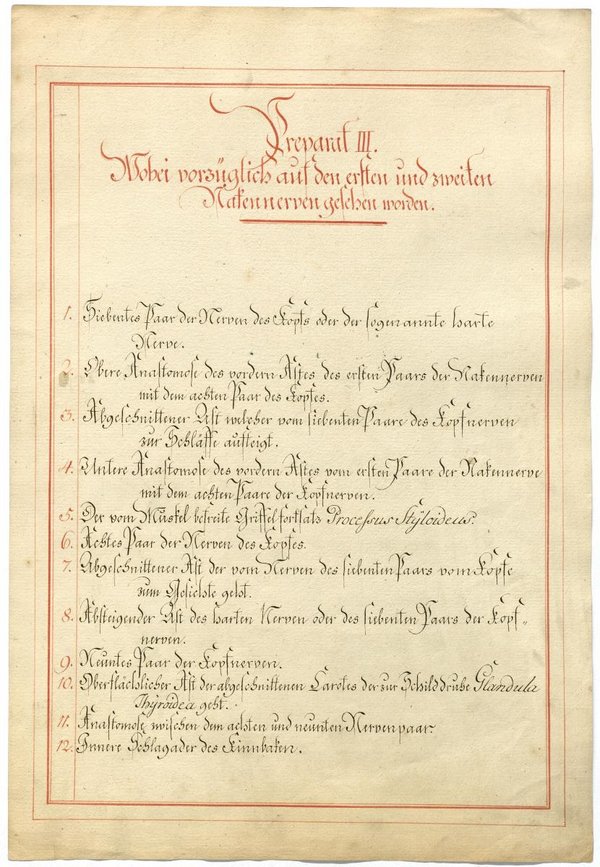 Preparat III.
Wobei vorzüglich auf den ersten und zweiten
Nakennerven gesehen worden.
1. Siebentes Paar der Nerven des Kopfs oder der sogenannte harte
Nerve.
2. Obere Anastomose des vordern Astes des ersten Paars der Nakennerven
mit dem achten Paar des Kopfes.
3. Abgeschnittener Ast welcher vom siebenten Paare des Kopfnerven
zur Schläffe aufteigt.
4. Untere Anastomose des vordern Astes vom ersten Paare der Nakennerve
mit dem achten Paare der Kopfnerven.
5. Der vom Muskel befreite Griffelfortsatz Processus Styloideus.
6. Achtes Paar der Nerven des Kopfes.
7. Abgeschnittener Ast der vom Nerven des siebenten Paars vom Kopfe
zum Gesichte geht.
8. Absteigender Ast des harten Nerven oder des siebenten Paars der Kopf-
nerven.
9. Neuntes Paar der Kopfnerven.
10. Oberflächlicher Ast der abgeschnittenen Carotes der zur Schilddruhe Glandula
Thyroidea geht.
11. Anastomose zwischen dem achten und neunten Nervenpaar
12. Innere Schlagader des Kinnbaken.